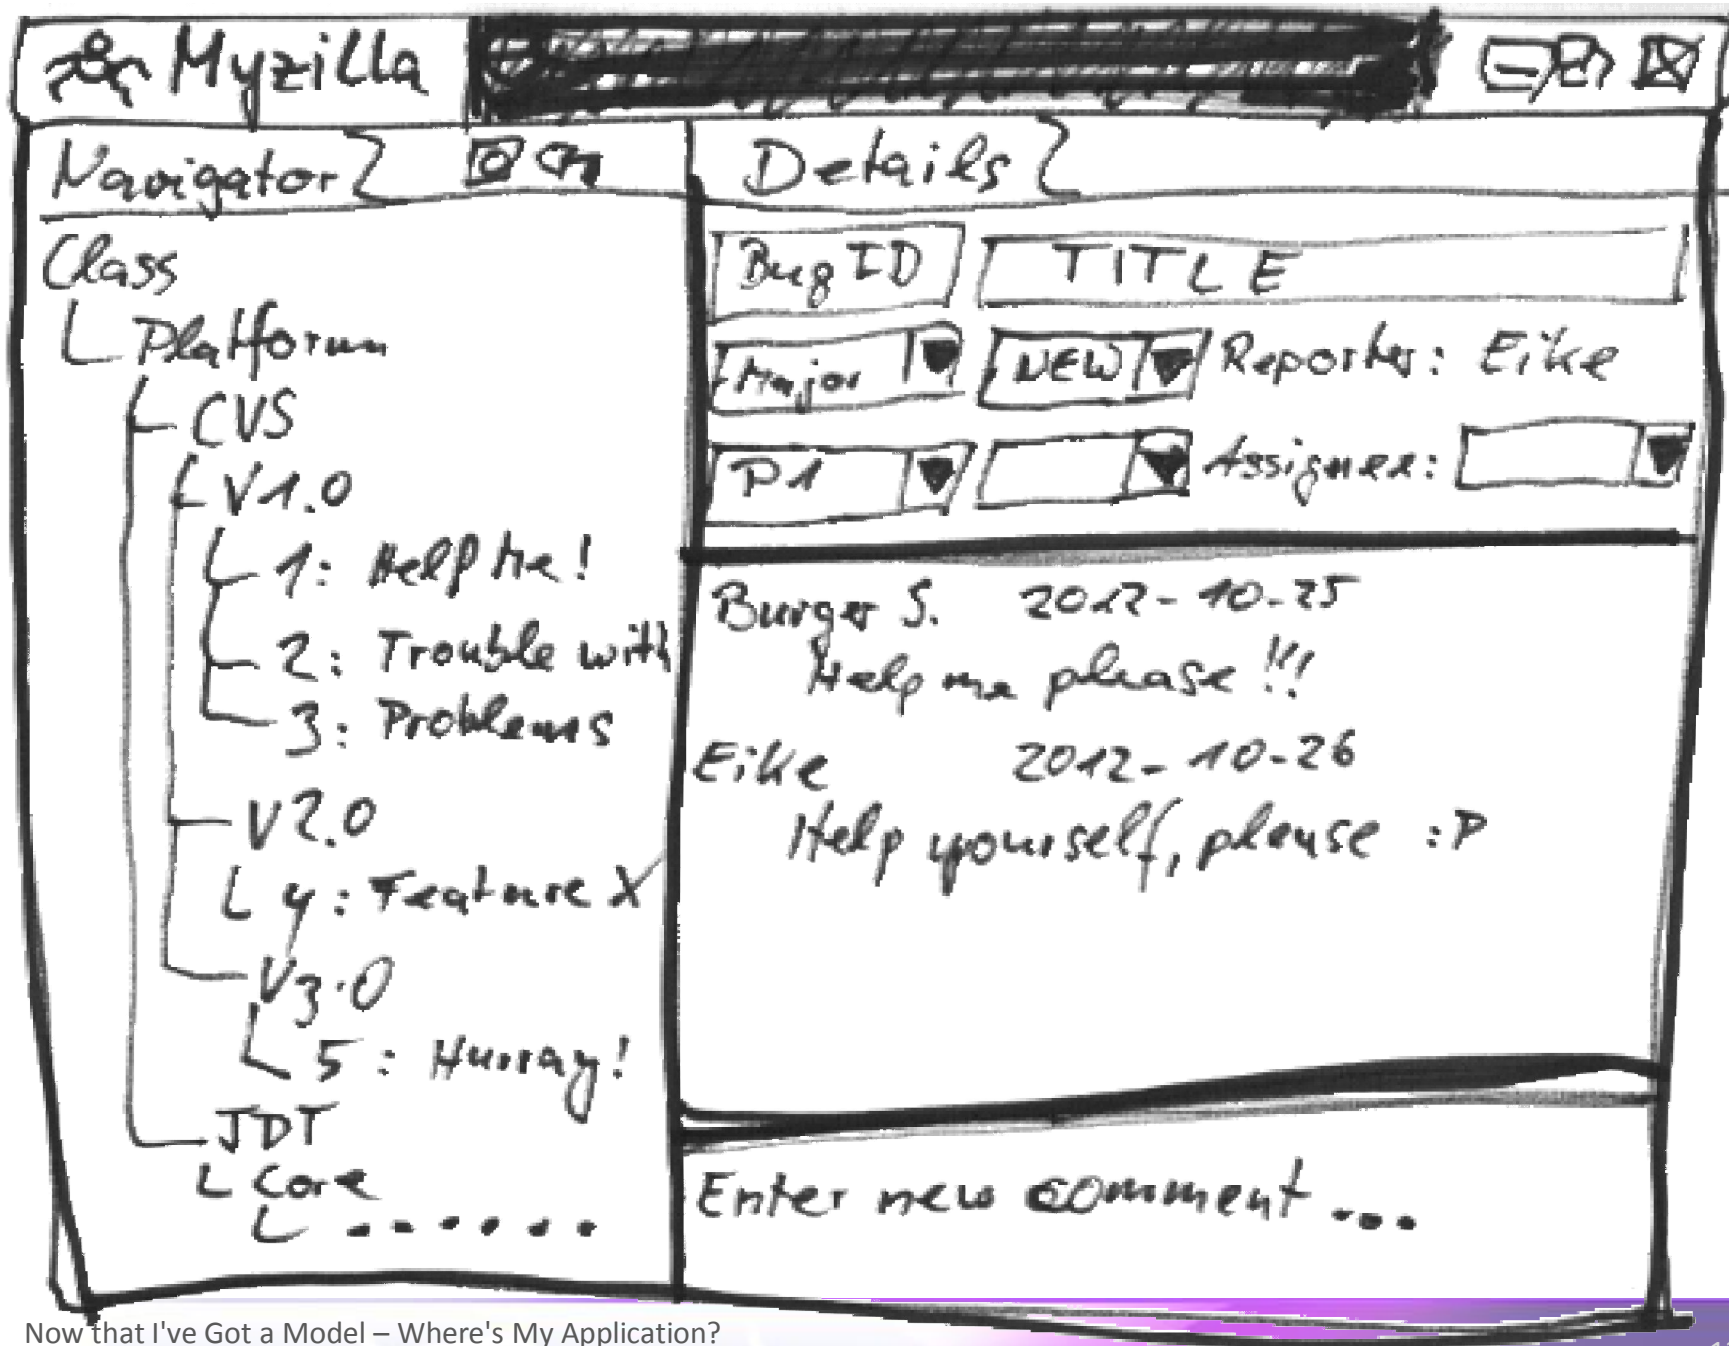 Myzilla
Navigator
Class
Platform
CVS
V1.0
1: Help Me!
2: Trouble with
3: Problems
V2.0
4: Feature X
V3.0
5: Hurray!
JDT
Core
......
Details
Bug ID TITLE
Major NEW Reporter: Eike
P1 Assignee:
Burger S. 2012-10-25
Help me please!!!
Eike 2012-10-26
Help yourself, please :P
Enter new comment ...
Now that I've Got a Model – Where's My Application?